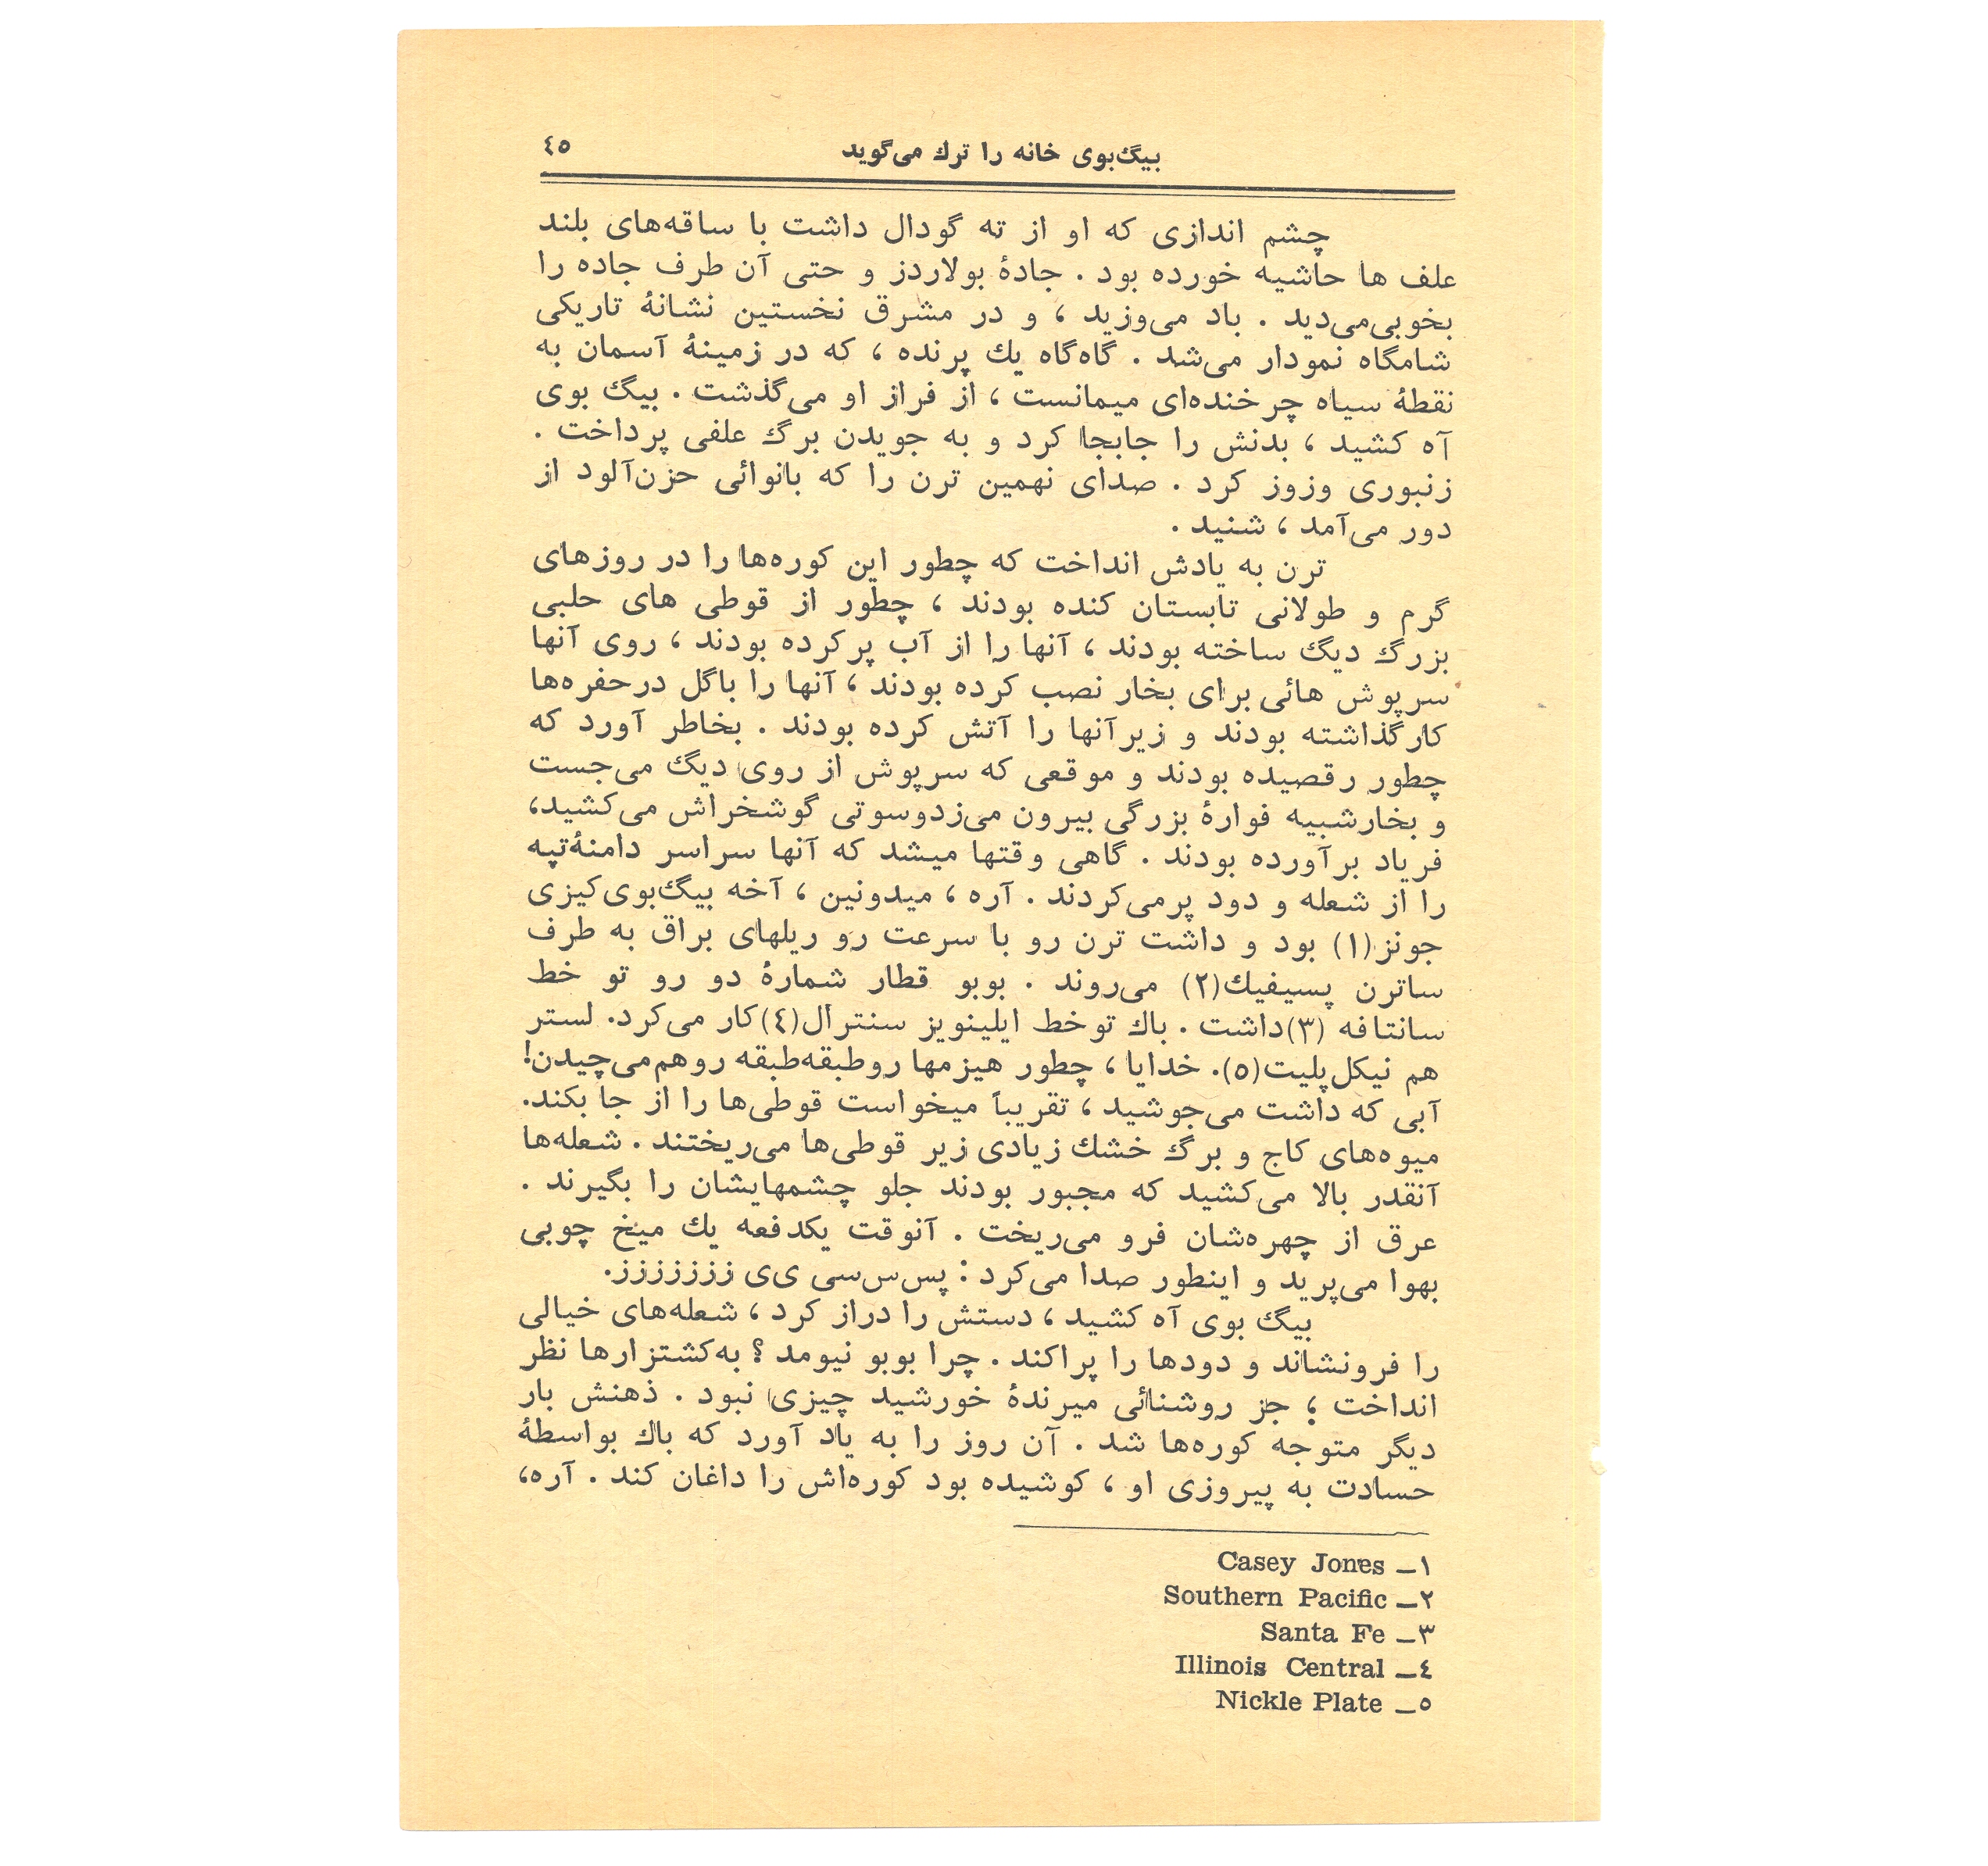 بیگ‌بوی خانه را ترك می‌گوید ٤٥
چشم اندازی که او از ته گودال داشت با ساقه‌های بلند
علف ها حاشیه خورده بود . جادهٔ بولاردز و حتی آن طرف جاده را
بخوبی‌می‌دید . باد می‌وزید ، و در مشرق نخستین نشانهٔ تاریکی
شامگاه نمودار می‌شد . گاه‌گاه یك پرنده ، که در زمینهٔ آسمان به
نقطهٔ سیاه چرخنده‌ای میمانست ، از فراز او می‌گذشت . بیگ بوی
آه کشید ، بدنش را جابجا کرد و به جویدن برگ علفی پرداخت .
زنبوری وزوز کرد . صدای نهمین ترن را که بانوائی حزن‌آلود از
دور می‌آمد ، شنید .
ترن به یادش انداخت که چطور این کوره‌ها را در روزهای
گرم و طولانی تابستان کنده بودند ، چطور از قوطی های حلبی
بزرگ دیگ ساخته بودند ، آنها را از آب پرکرده بودند ، روی آنها
سرپوش هائی برای بخار نصب کرده بودند ، آنها را باگل درحفره‌ها
کارگذاشته بودند و زیرآنها را آتش کرده بودند . بخاطر آورد که
چطور رقصیده بودند و موقعی که سرپوش از روی دیگ می‌جست
و بخارشبیه فوارهٔ بزرگی بیرون می‌زدوسوتی گوشخراش می‌کشید،
فریاد برآورده بودند . گاهی وقتها میشد که آنها سراسر دامنهٔ‌تپه
را از شعله و دود پرمی‌کردند . آره ، میدونین ، آخه بیگ‌بوی‌کیزی
جونز(١) بود و داشت ترن رو با سرعت رو ریلهای براق به طرف
ساترن پسیفیك(٢) می‌روند . بوبو قطار شمارهٔ دو رو تو خط
سانتافه (٣)داشت . باك توخط ایلینویز سنترال(٤)کار می‌کرد. لستر
هم نیکل‌پلیت(٥). خدایا ، چطور هیزمها روطبقه‌طبقه روهم‌می‌چیدن!
آبی که داشت می‌جوشید ، تقریباً میخواست قوطی‌ها را از جا بکند.
میوه‌های کاج و برگ خشك زیادی زیر قوطی‌ها می‌ریختند . شعله‌ها
آنقدر بالا می‌کشید که مجبور بودند جلو چشمهایشان را بگیرند .
عرق از چهره‌شان فرو می‌ریخت . آنوقت یکدفعه یك میخ چوبی
بهوا می‌پرید و اینطور صدا می‌کرد : پس‌س‌سی ی‌ی ززززززز.
بیگ بوی آه کشید ، دستش را دراز کرد ، شعله‌های خیالی
را فرونشاند و دودها را پراکند . چرا بوبو نیومد ؟ به‌کشتزارها نظر
انداخت ؛ جز روشنائی میرندهٔ خورشید چیزی نبود . ذهنش بار
دیگر متوجه کوره‌ها شد . آن روز را به یاد آورد که باك بواسطهٔ
حسادت به پیروزی او ، کوشیده بود کوره‌اش را داغان کند . آره،
١ــ Casey Jones
٢ــ Southern Pacific
٣ــ Santa Fe
٤ــ Illinois Central
٥ــ Nickle Plate